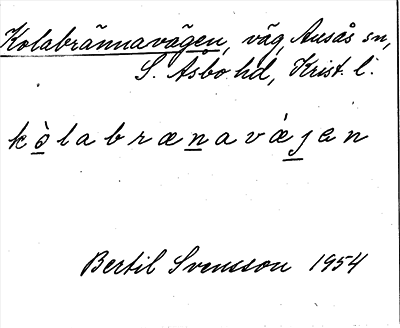 Kolabrännavägen, väg, Ausås sn,
S. Åsbo hd, Krist. l.
kòlabrænavájen
Bertil Svensson 1954